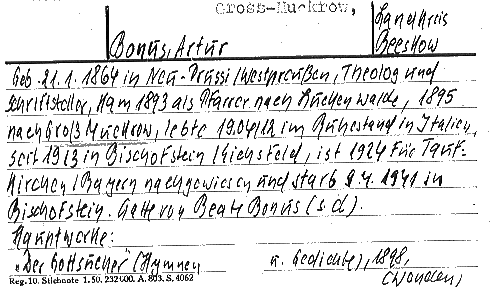 Gross-Muckrow,
Landkreis
Bonus, Artur
Beeskow
Geb. 21.1.1864 in Neu-Prussi/Westpreußen, Theolog und
Schriftsteller, kam 1893 als Pfarrer nach Luckenwalde, 1895
nach Groß Muckrow, lebte 1904/12 im Ruhestand in Italien,
seit 1913 in Bischofstein/Eichsfeld, ist 1924 für Tauf-
kirchen/Bayern nachgewiesen und starb 9.4.1941 in
Bischofstein. Gatte von Beate Bonus (s.d).
Hauptwerke:
"Der Gottsucher" (Hymnen u. Gedichte), 1898,
Reg. 10. Stichnote 1. 50. 232000. A. 803. S. 4062